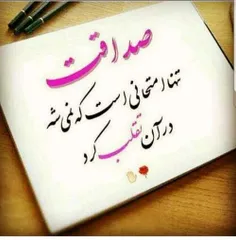 صداقت
تنها امتحانی است که نمی شه
در آن تقلب
کرد